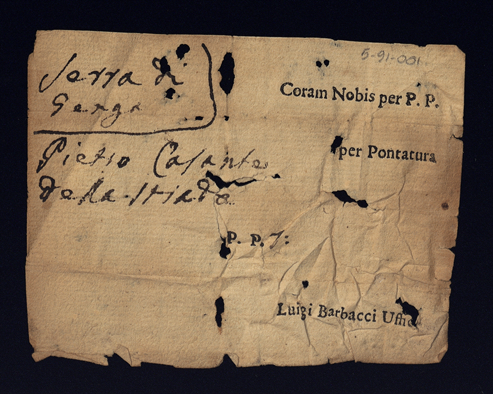 5-91-001
Serra di
Genga
Pietro Casante
della Strada
Coram Nobis per P. P.
per Pontatura
P. P. 7:
Luigi Barbacci Uffic